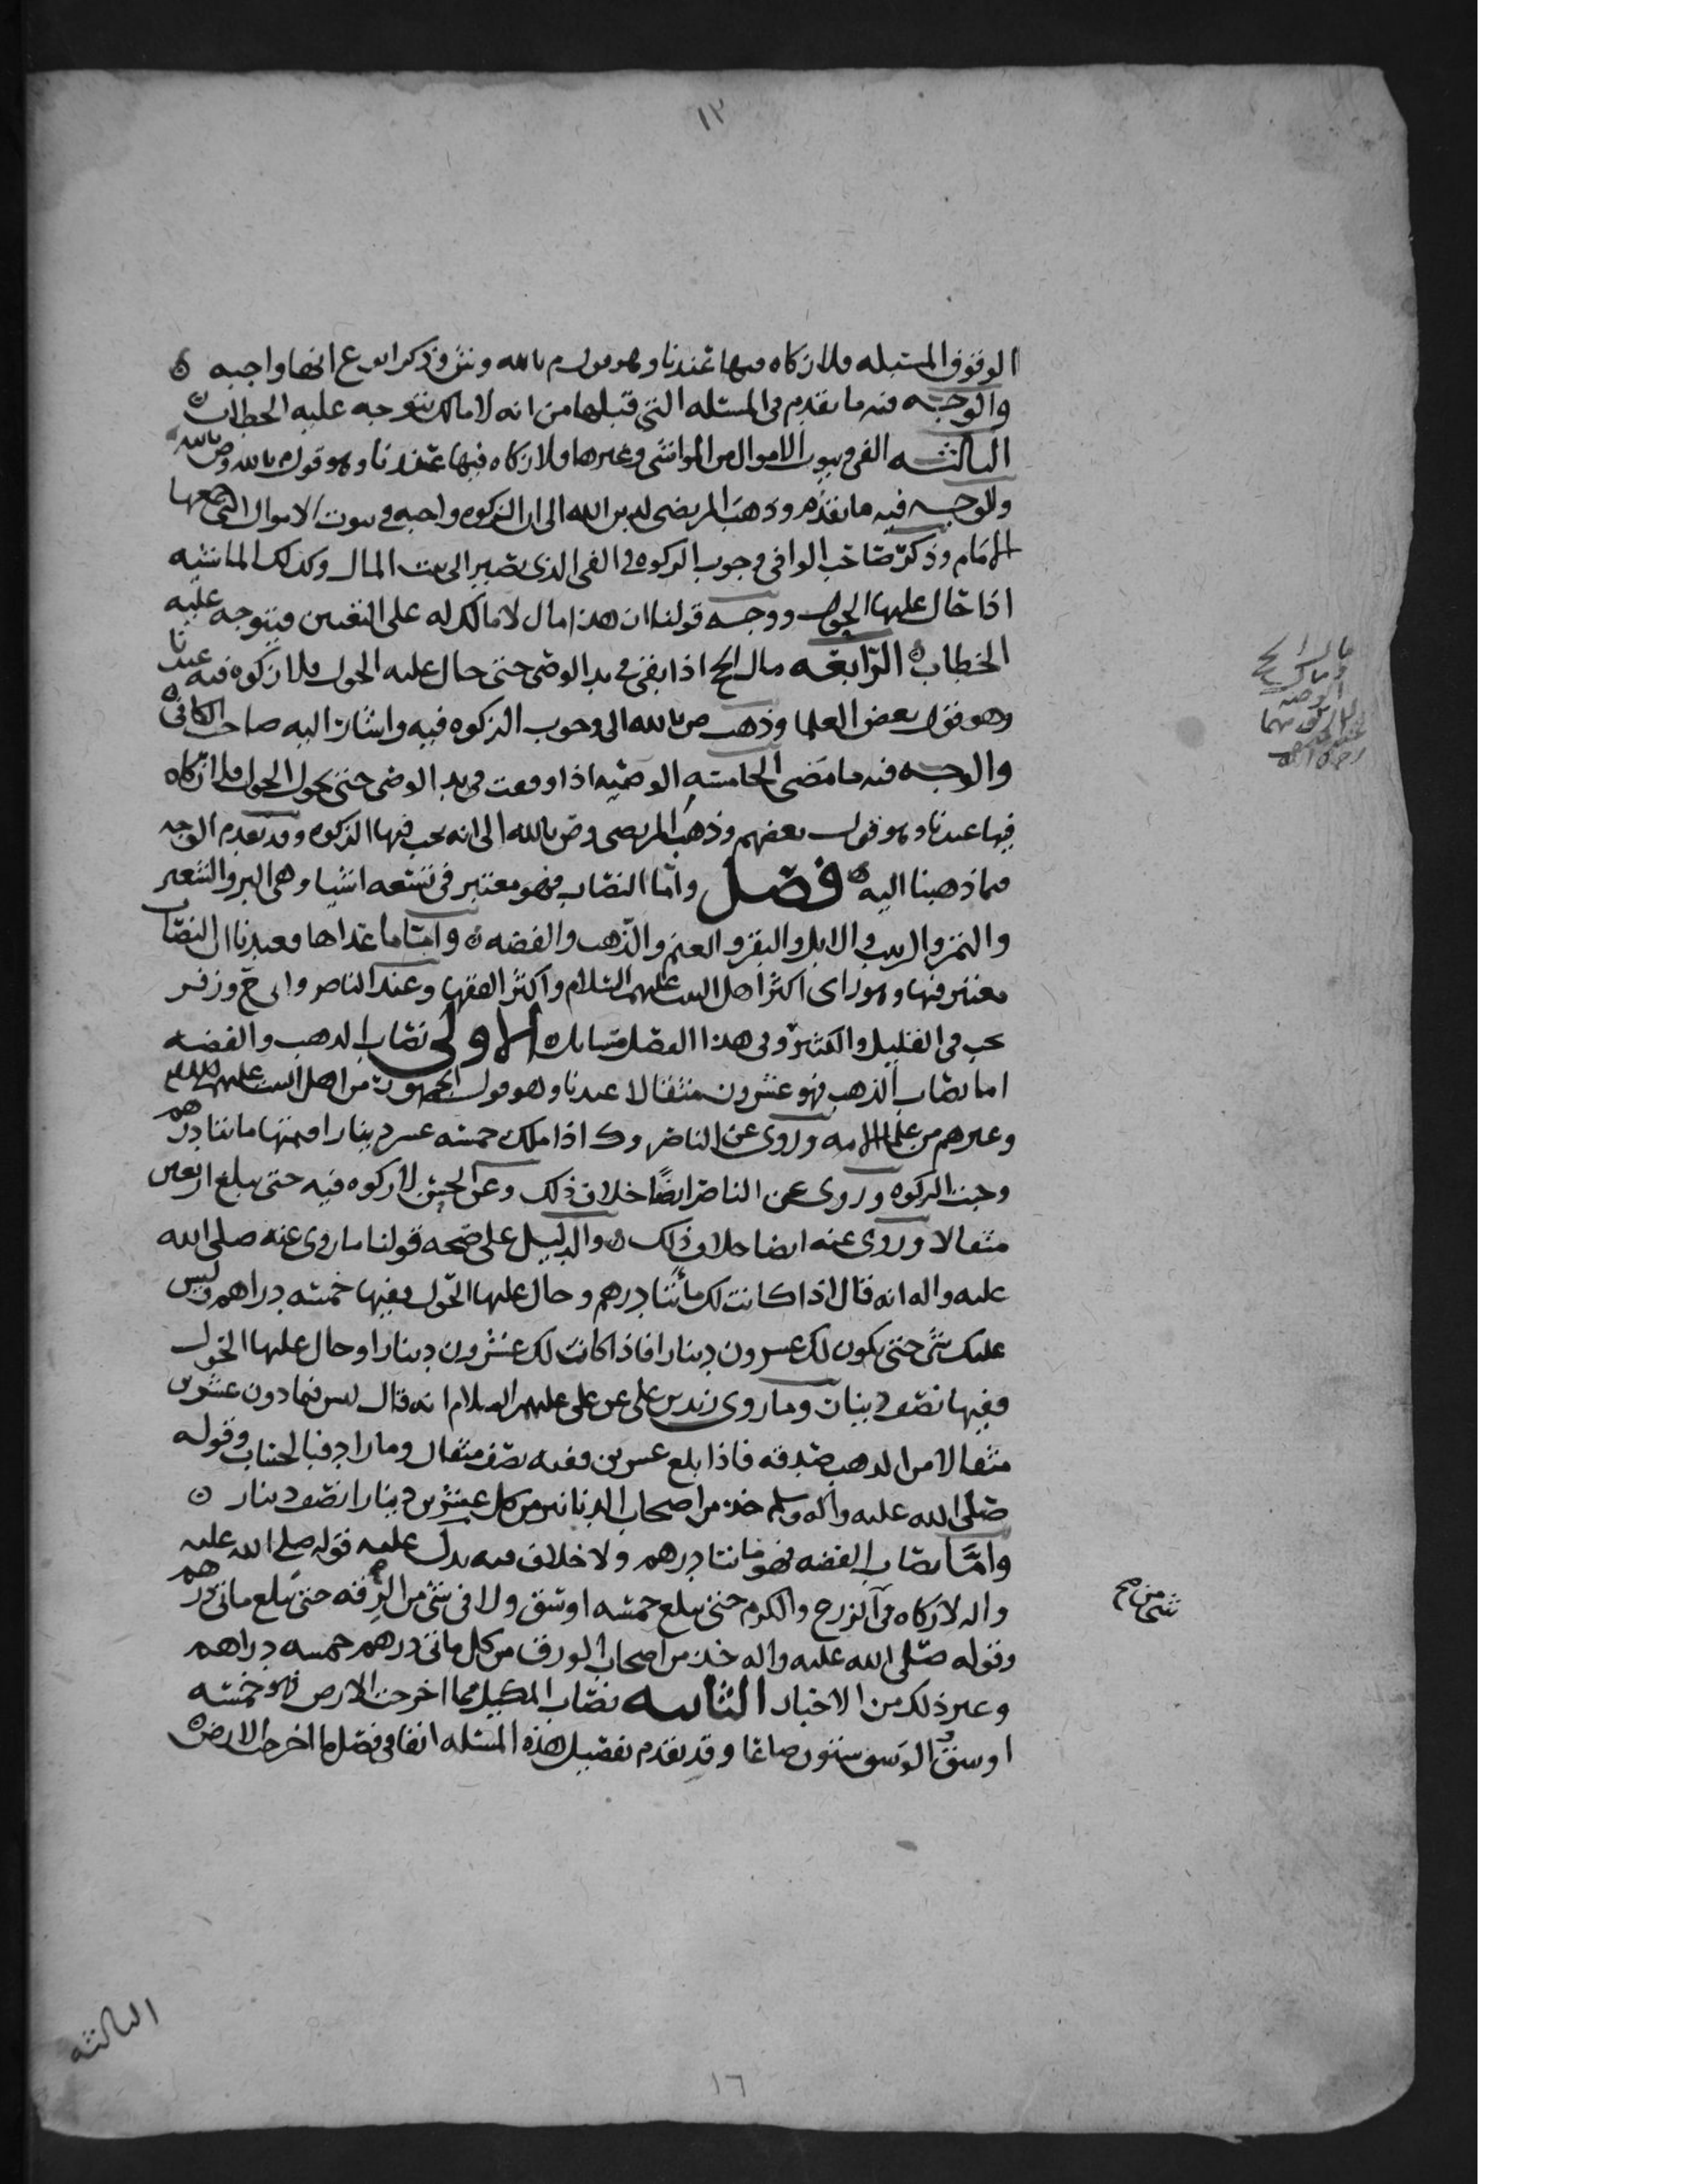 ١٢
الوقوف المستبله فلا زكاه فيها عندنا وهو قول م بالله ون وش وذكر ابو ع انها واجبه ه
والوجه فيه ما تقدم في المسئله التي قبلها من انه لا مالك يتوجه عليه الخطاب ه
الثالثه الفي وبيوت الاموال من المواشي وغيرها فلا زكاه فيها عندنا وهو قول م بالله وص بالله
والوجه فيه ما تقدم وذهب المرتضى لدين الله الى ان الزكوه واجبه في بيوت الاموال التي جمعها
الامام وذكر صاحب الوافي وجوب الزكوه في الفي الذي يصير الى بيت المال وكذلك الماشيه
اذا حال عليها الحول ووجه قولنا ان هذا مال لا مالك له على التعيين فيتوجه عليه
الخطاب ه الرابعه مال الحج اذا بقي في يد الوصي حتى حال عليه الحول فلا زكوه فيه عندنا
وهو قول بعض العلما وذهب ص بالله الى وجوب الزكوه فيه واشار اليه صاحب الكافي ه
والوجه فيه ما مضى الخامسه الوصيه اذا وقعت في يد الوصي حتى يحول الحول فلا زكاه
فيها عندنا وهو قول بعضهم وذهب المرتضى وص بالله الى انه يجب فيها الزكوه وقد تقدم الوجه
فيما ذهبنا اليه ه فصل واما النصاب فهو معتبر في تسعه اشيا وهي البر والشعير
والتمر والزبيب والابل والبقر والغنم والذهب والفضه ه واما ما عداها فعندنا ان النصاب
معتبر فيها وهو راي اكثر اهل البيت عليهم السلام واكثر الفقها وعند الناصر وابي ح وزفر
يجب في القليل والكثير وفي هذا الفصل مسايل ه الاولى نصاب الذهب والفضه
اما نصاب الذهب فهو عشرون مثقالا عندنا وهو قول الجمهور من اهل البيت عليهم السلام
وغيرهم من علما الامه وروي عن الناصر وك اذا ملك خمسه عشر دينارا قيمتها مائتا درهم
وجبت الزكوه وروي عن الناصر ايضًا خلاف ذلك وعن الحسن لا زكوه فيه حتى يبلغ اربعين
مثقالا وروي عنه ايضا خلاف ذلك ه والدليل على صحه قولنا ما روي عنه صلى الله
عليه واله انه قال اذا كانت لك مائتا درهم وحال عليها الحول ففيها خمسه دراهم وليس
عليك شي حتى يكون لك عشرون دينارا فاذا كانت لك عشرون دينارا وحال عليها الحول
ففيها نصف دينار وما روى زيد بن علي عن علي عليهم السلام انه قال ليس فيما دون عشرين
مثقالا من الذهب صدقه فاذا بلغ عشرين ففيه نصف مثقال وما زاد فبالحساب وقوله
صلى الله عليه واله وسلم خذ من اصحاب الدنانير من كل عشرين دينارا نصف دينار ه
وامَّا نصاب الفضه فهو مائتا درهم ولا خلاف فيه يدل عليه قوله صلى الله عليه
واله لا زكاه في الزرع والكرم حتى يبلغ خمسه اوسق ولا في شي من الرقه حتى يبلغ مائتي درهم
وقوله صلى الله عليه واله خذ من اصحاب الورق من كل مائتي درهم خمسه دراهم
وغير ذلك من الاخبار الثانيه نصاب المكيل مما اخرجت الارض فهو خمسه
اوسق الوسق ستون صاعا وقد تقدم تفصيل هذه المسئله انفا في فصل ما اخرجت الارض ه
مال الحج
الثالثه
١٦